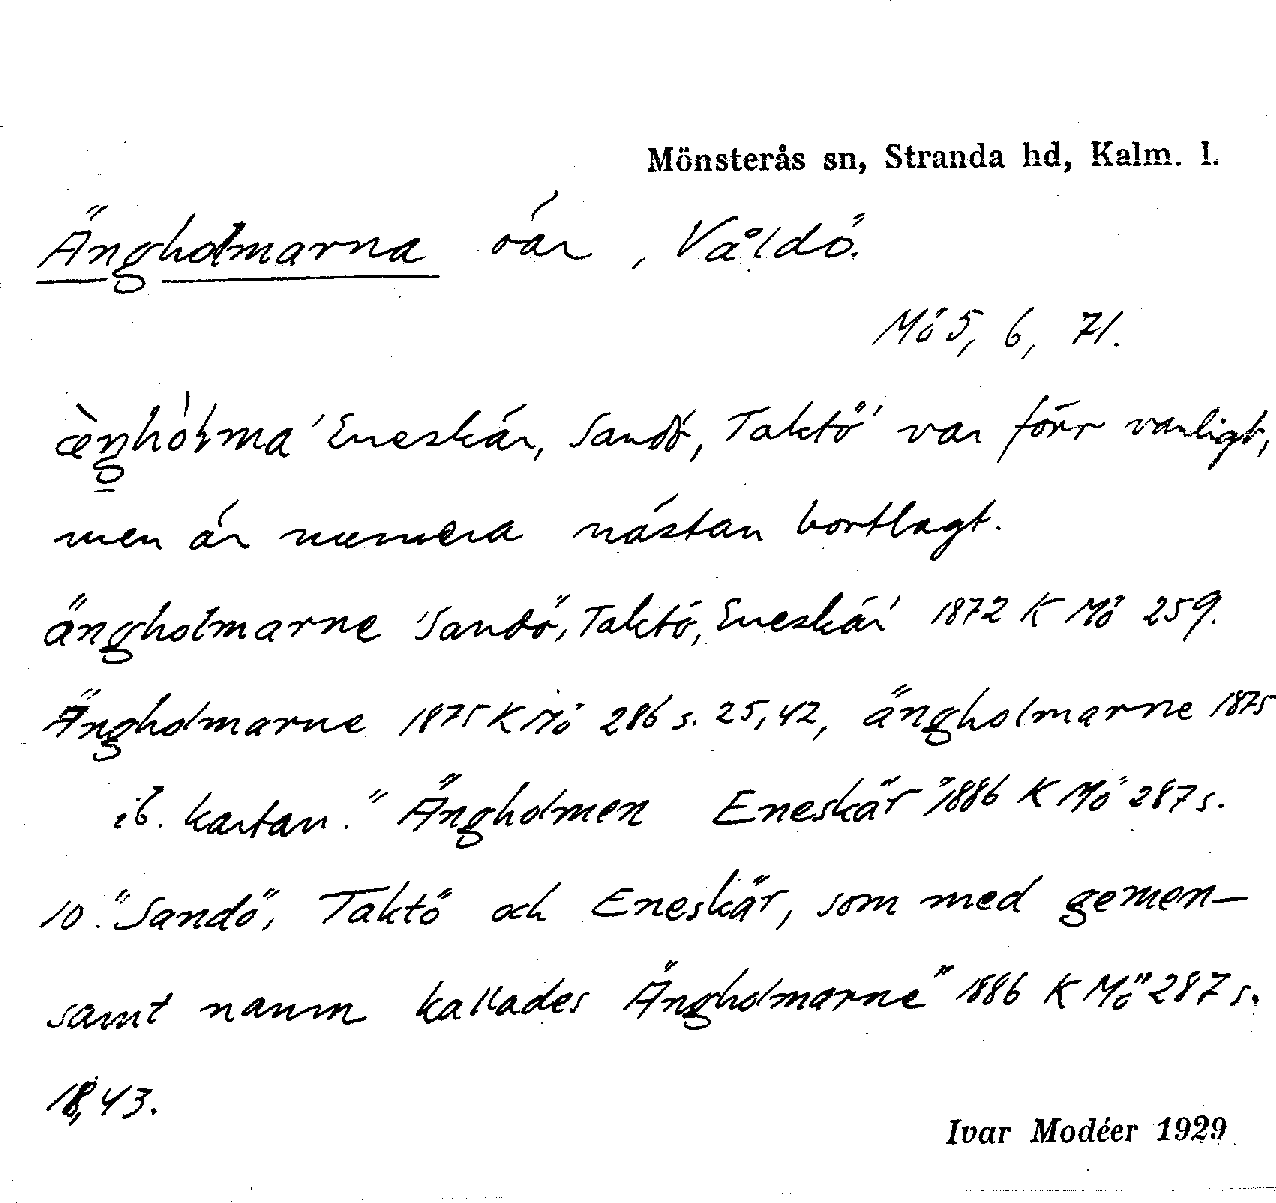 Mönsterås sn, Stranda hd, Kalm. l.
Ängholmarna öar, Våldö.
Mö 5, 6, 71.
'Eneskär, Sandö, Taktö' var förr vanligt,
men är numera nästan bortlagt.
ängholmarne 'Sandö, Taktö, Eneskär' 1872 K Mö 259.
Ängholmarne 1875 K Mö 286 s. 25, 42, ängholmarne 1875
ib. kartan. "Ängholmen Eneskär" 1886 K Mö 287 s.
10. "Sandö, Taktö och Eneskär, som med gemen-
samt namn kallades Ängholmarne" 1886 K Mö 287 s.
18, 43.
Ivar Modéer 1929